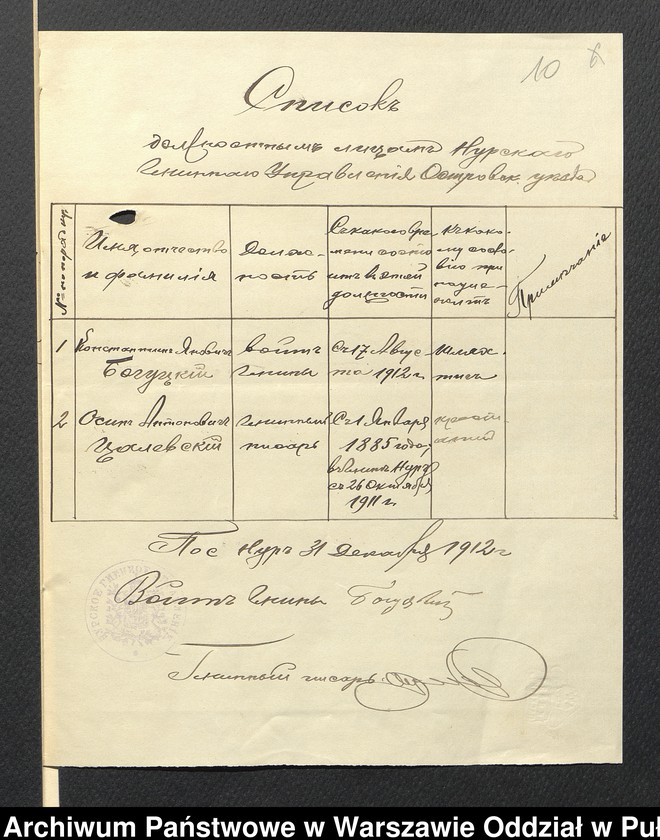 10
Списокъ
должностнымъ лицамъ Нурскаго
Гминнаго Управленія Островск. уѣзда
№ по порядку
Имя, отчество
и фамилія
Долж-
ность
Съ какого вре
мени состо
итъ въ этой
должности
Къ како-
му сосло-
вію при
надле-
житъ
Примѣчаніе
1
Константинъ Яновичъ
Богуцкій
Войтъ
гмины
Съ 17 Авгус
та 1912 г.
Шлях-
тичъ
2
Осипъ Антоновичъ
Цалевскій
Гминный
писарь
Съ 1 Января
1885 года,
въ гминѣ Нуръ
съ 26 Октября
1911 г.
Пос Нуръ 31 Декабря 1912 г
Войтъ Гмины Богуцкій
Гминный писарь
Archiwum Państwowe w Warszawie Oddział w Puł